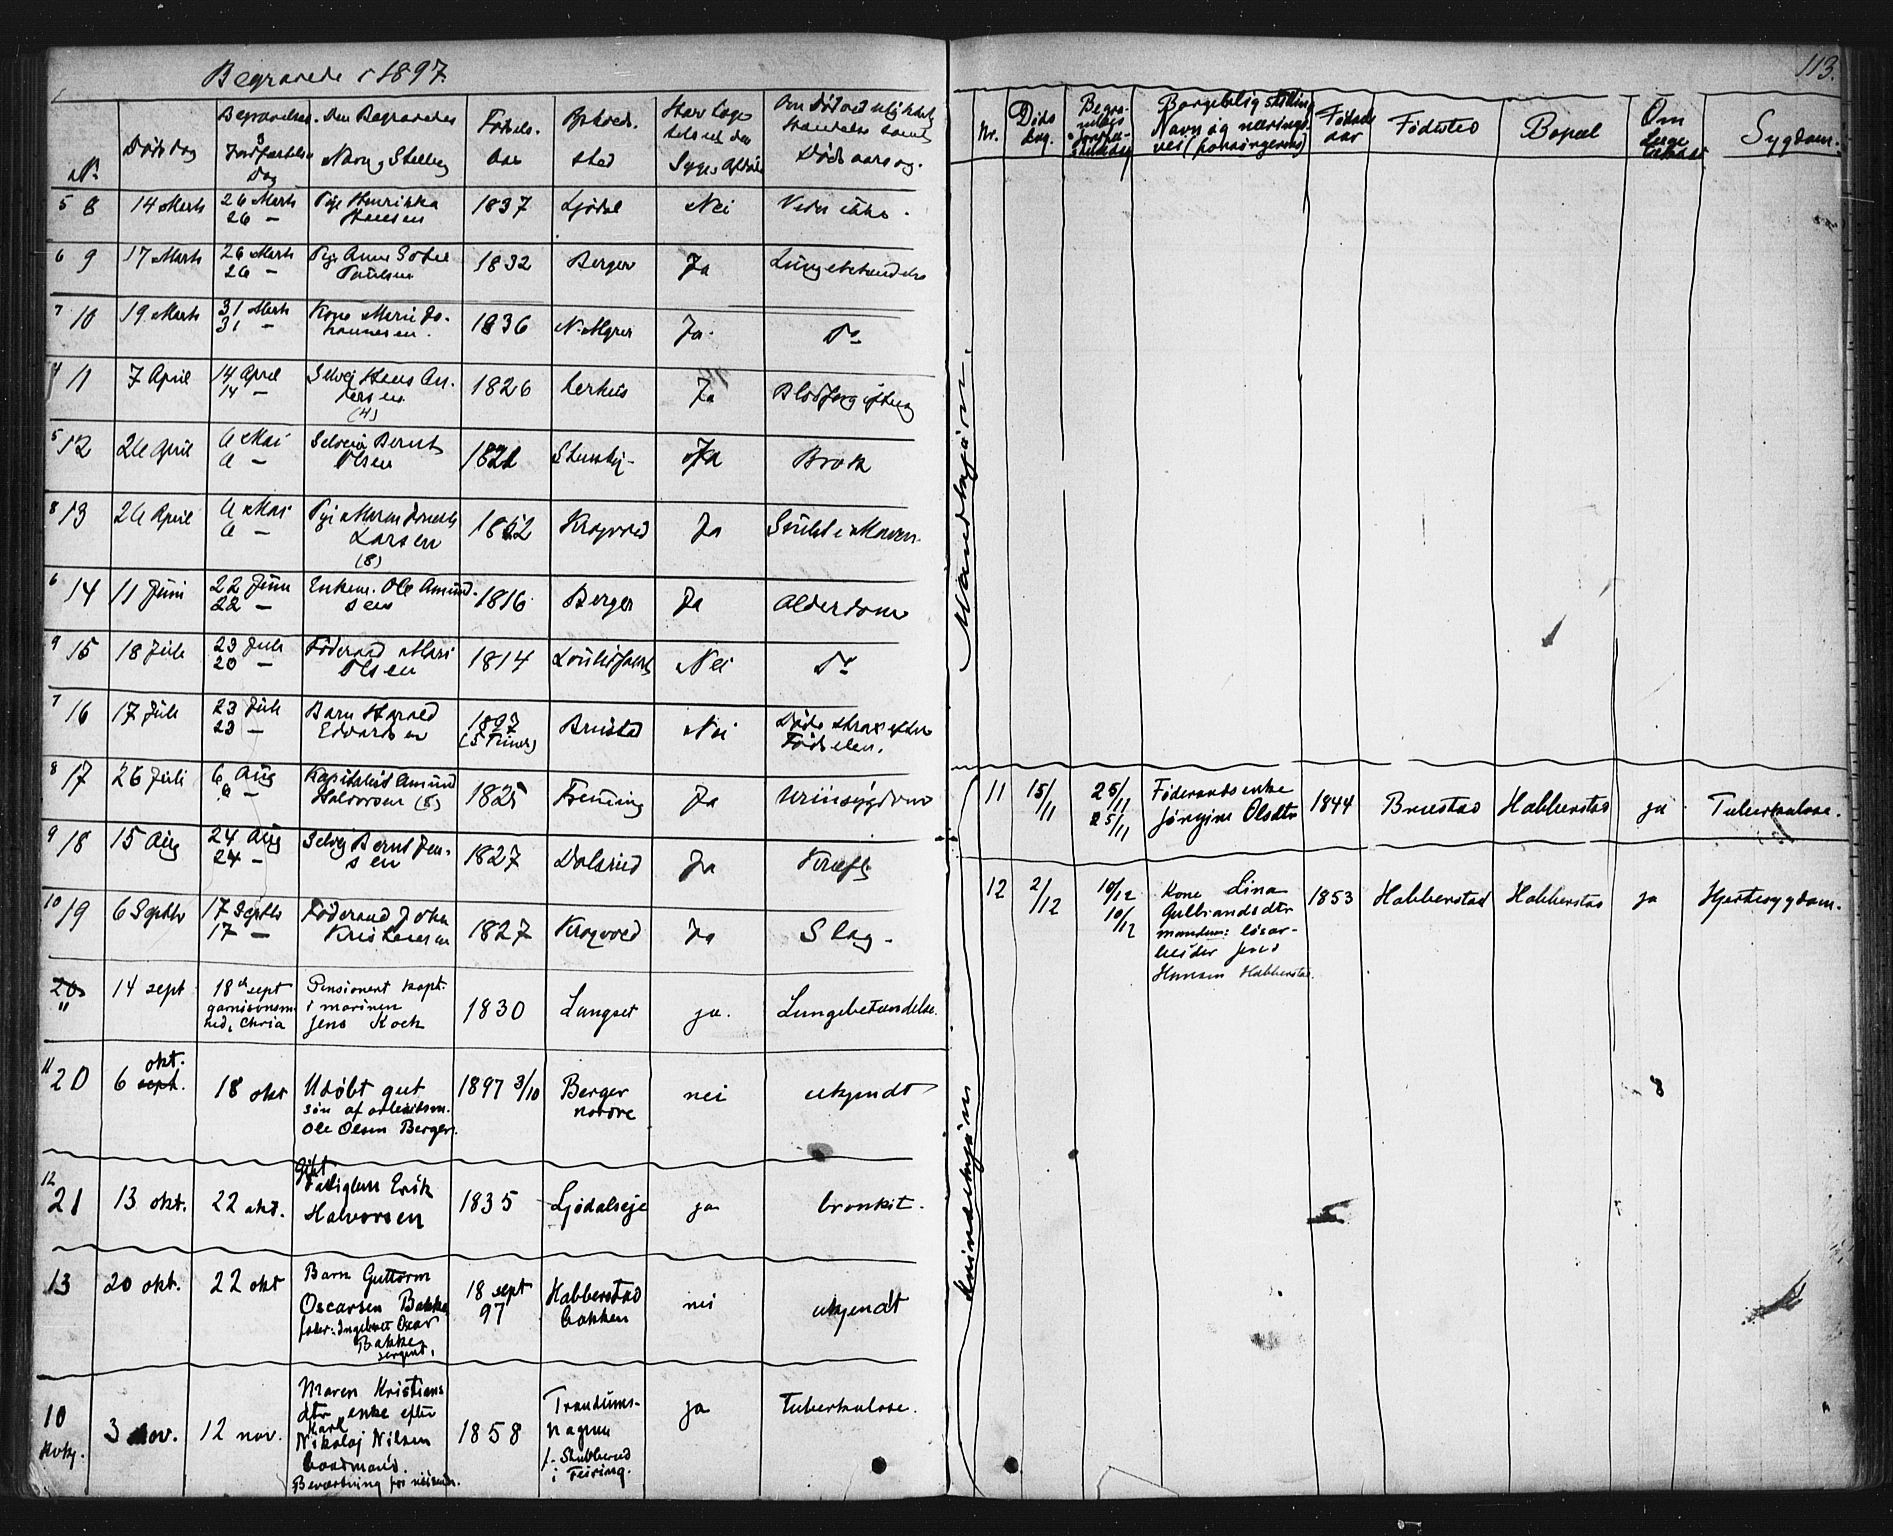 Begravede i 1897.
No
Dødsdag
Begravelses- & Jordfæstelses Dag
Den Begravedes Navn, Stilling
Fødsels-Aar
Opholds-sted
Om Død ved ulykkelig Hændelse samt Dødsaarsag.
5 8 14 Marts 26 Marts 26 — Pige Henrikka Hansen 1837 Ljødal Nei Vides ikke.
6 9 17 Marts 26 Marts 26 — Pige Anne Sofie Paulsen 1832 Berger Ja Lungebetændelse
7 10 19 Marts 31 Marts 31 — Kone Marie Johannesen. 1836 N. Ja Do
4 11 7 April 14 April 14 — Selvei Hans Andersen (4) 1826 Ja Blodforgiftning
5 12 26 April 6 Mai 6 — Selveier Bernt Olsen 1821 Ja Brok
8 13 26 April 6 Mai 6 — Pige Maren Larsen (8) 1852 Krogvold Ja Svulst i Maven.
6 14 11 Juni 22 Juni 22 — Enkem. Ole Amundsen 1816 Berger Ja Alderdom
9 15 18 Juli 23 Juli 20 — Føderaad Mari Olsen 1814 Nei Do
7 16 17 Juli 23 Juli 23 — Barn Harald Edvardsen 1897 (5 Timer) Brusted Nei Døde strax efter Fødselen.
8 17 26 Juli 6 Aug 6 — Kapitalist Amund Halvorsen (5) 1825 Frening Ja Urinsygdom
9 18 15 Aug 24 Aug 24 — Selvei Bernt Jensen 1827 Ja Kræft
10 19 6 Septbr 17 Septbr 17 — Føderaad Johan Kristiansen 1827 Krogvold Ja Slag.
20 " 14 sept 18de sept garnisonsm. hed, Chria Pensionert kapt. i marinen Jens Koch 1830 Langset ja. Lungebetændelse.
11 20 6 sept. okt. 18 okt Udøbt gut søn af arbeidsm. Ole Olsen Berger. 1897 3/10 Berger nordre nei ukjendt
12 21 13 okt. 22 okt. Gift Fattiglem Erik Halvorsen 1835 Ljødalseje ja bronkit.
13 20 okt. 22 okt Barn Guttorm Oscarsen Bakke fader: Ingebret Oscar Bakke sergent. 18 sept 97 Habberstad bakken nei ukjendt
10 Kvkj. 3 nov. 12 nov. Maren Kristiansdtr enke efter Karl Nikolaj Nilsen baadmand. Beværtning for reisende. 1858 Trandums- i Feiring. ja Tuberkulose.
113.
Nr.
Dødsdag.
Begravelses- Jordfæstelsesdag
Borgerlig stilling Navn og næringsvei (forsørgerens)
Fødselsaar
Fødested
Bopæl
Om lægetilkaldt
Sygdom.
Mandskjøn.
Kvindekjøn
11 15/11 25/11 25/11 Føderaadsenke Jørgine Olsdtr 1844 Brustad Habberstad ja Tuberkulose.
12 2/12 10/12 10/12 Kone Lina Gulbrandsdtr manden: løsarbeider Jens Hansen Habberstad. 1853 Habberstad Habberstad ja Hjertesygdom.
8